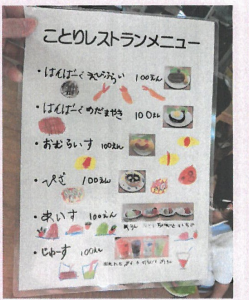 ことりレストランメニュー
・はんばーぐ えびふらい 100えん
・はんばーぐ めだまやき 100えん
・おむらいす 100えん
・ぴざ 100えん
・あいす 100えん
・じゅーす 100えん